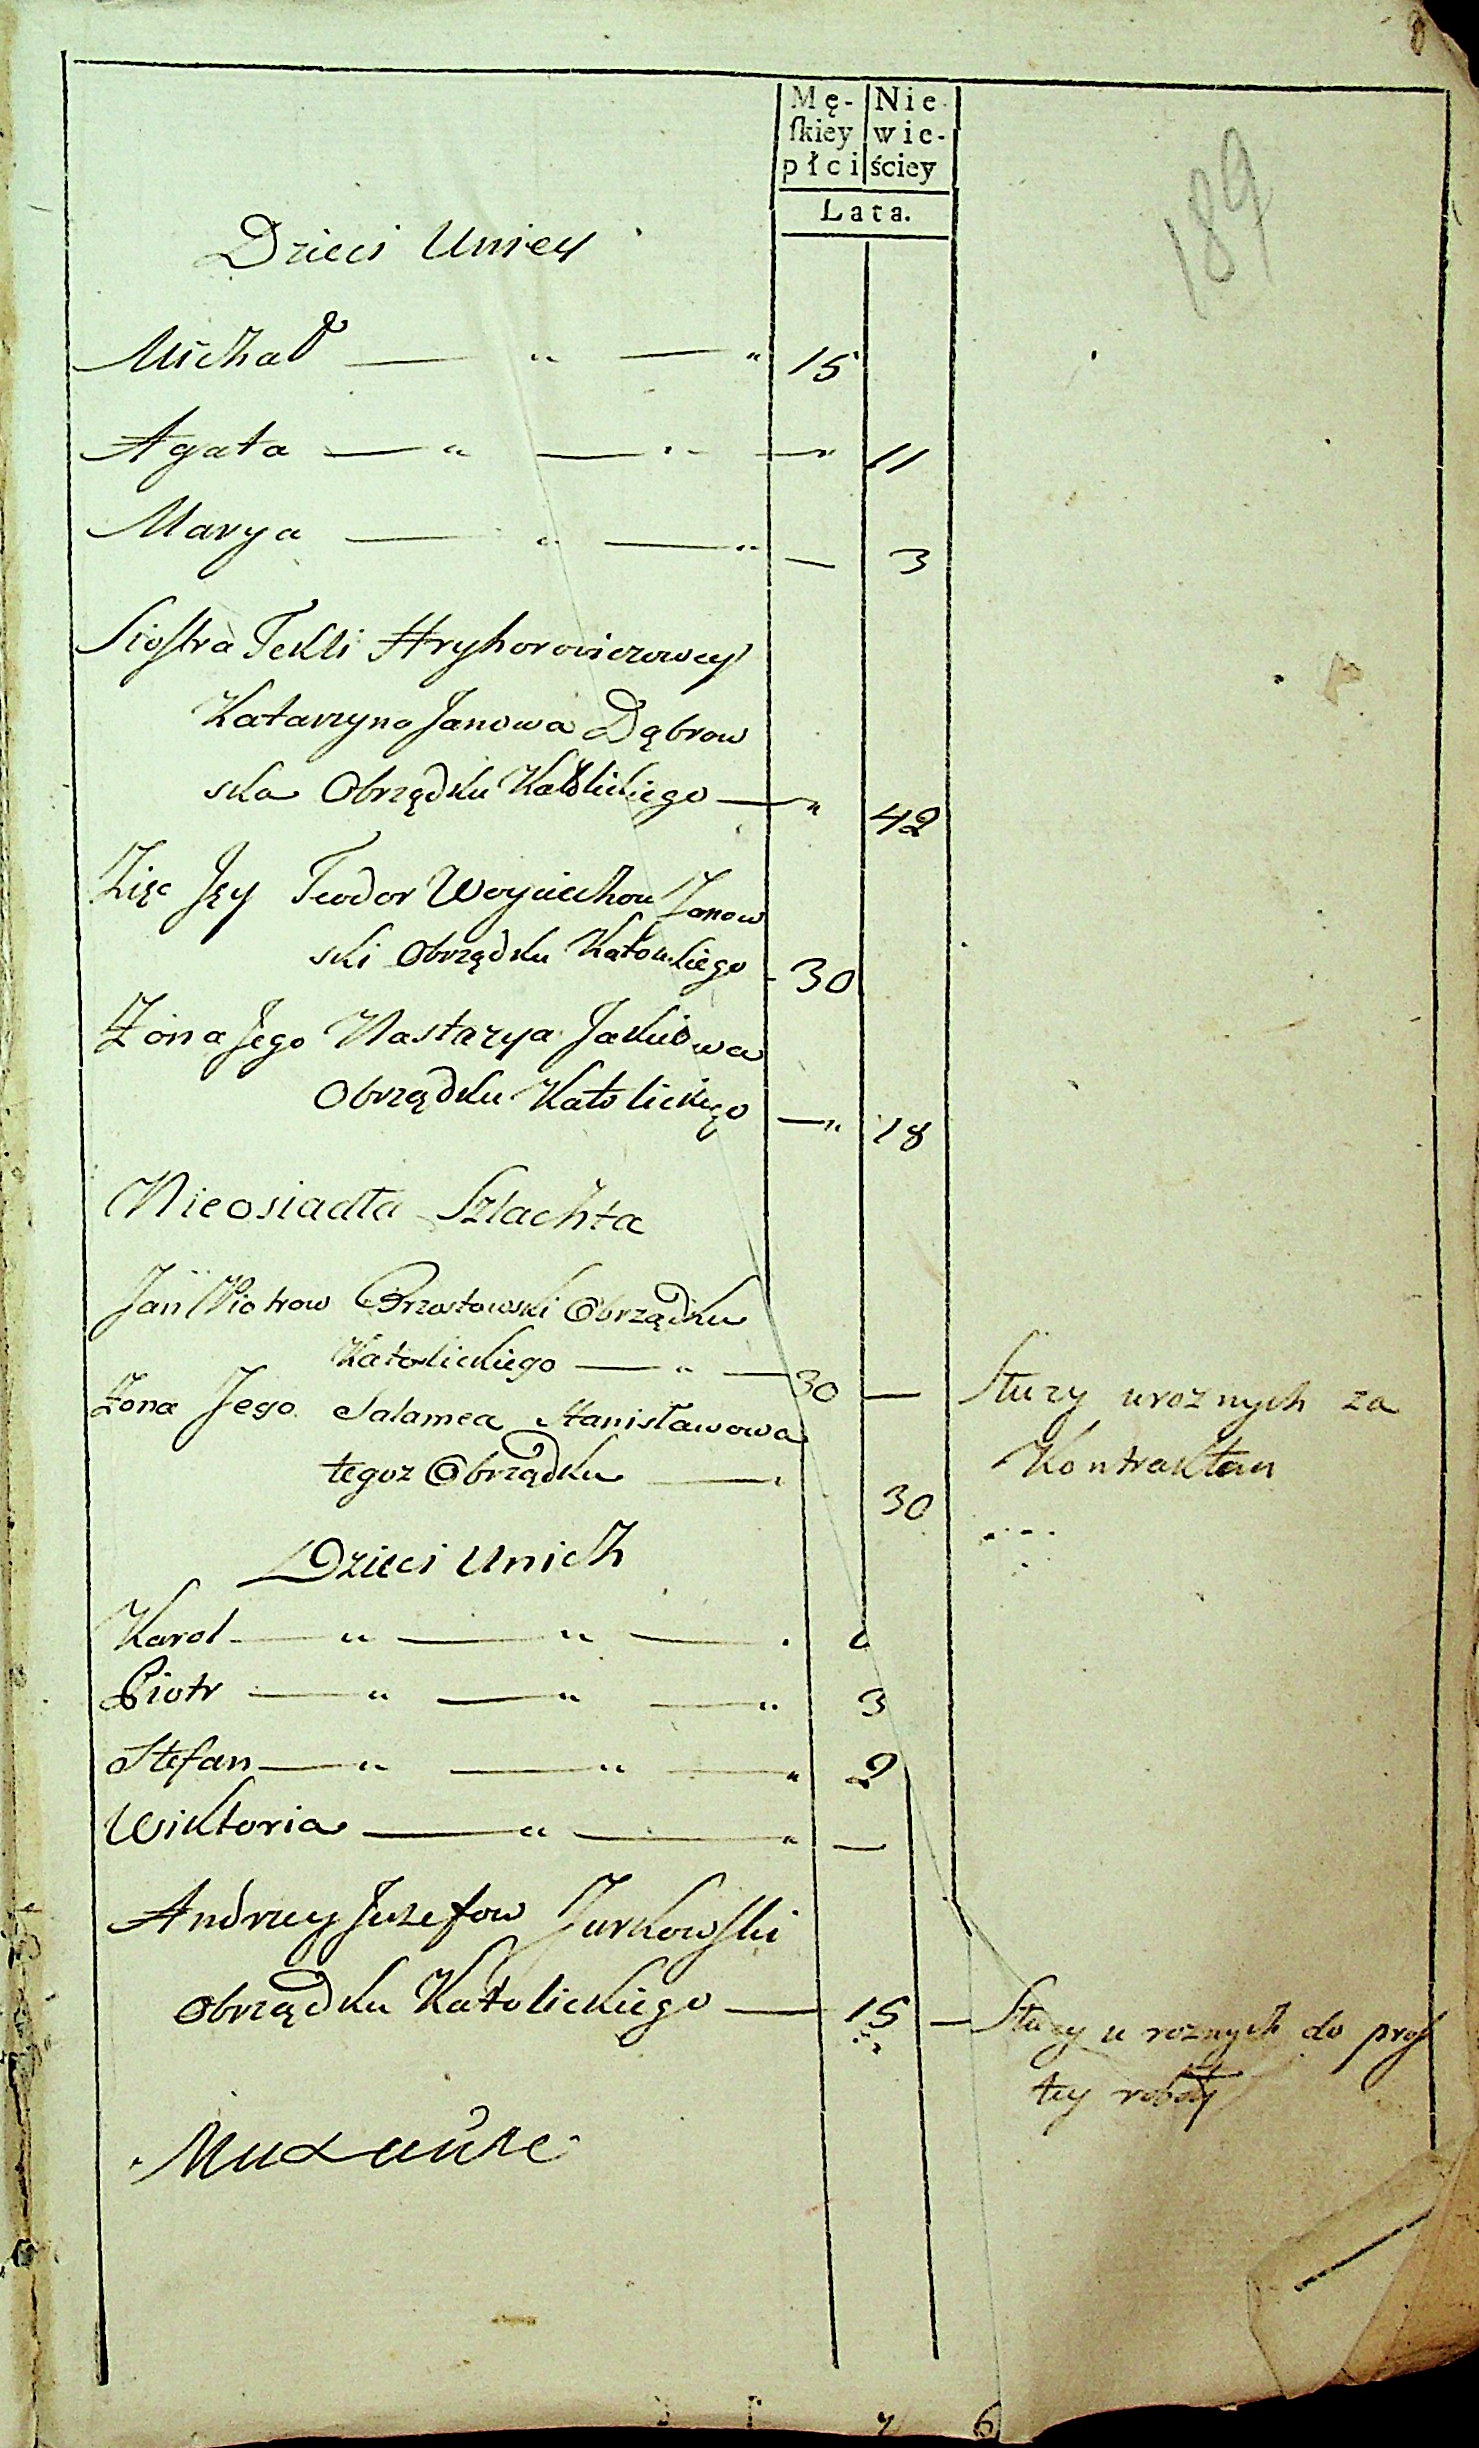 189
Mę- Nie
ſkiey wie-
płci ściey
Lata.
Dzieci Uniey
Michał — " — " 15
Agata — " — " — " 11
Marya — " — " — 3
Siostra Tekli Hryhorowiczowey
Katarzyna Janowa Dąbrow
ska Obrządku Katolickiego — " 42
Zięć Jey Teodor Woyciechow Janow
ski Obrządku Katolickiego - 30
Żona Jego Nastazya Jakubowa
Obrządku Katolickiego — " 18
Nieosiadła Szlachta
Jan Piotrow Brzostowski Obrządku
Katolickiego — " — 30 — Służy u roznych za
Żona Jego Salamea Stanisławowa
Kontraktem
tegoz Obrządku — 30
Dzieci Unich
Karol — " — " —
Piotr — " — " — " 3
Stefan — " — " — " 2
Wiktoria — " — " —
Andrzey Juzefow Jurkowski
Obrządku Katolickiego — 15 — Służy u roznych do pros
tey roboty